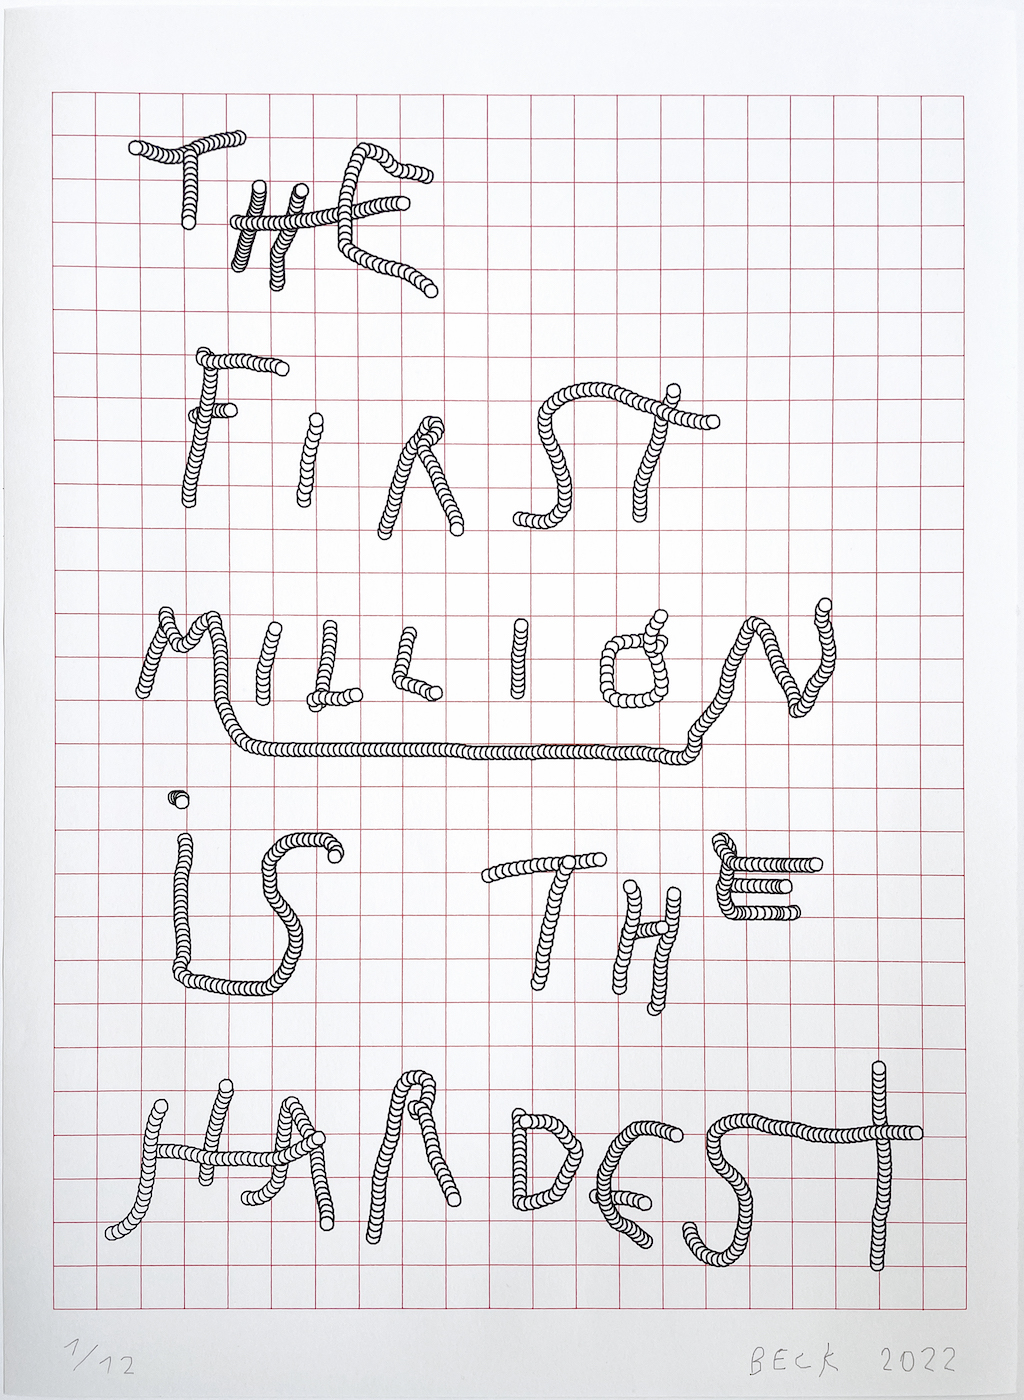 THE
FIRST
MILLION
iS THE
HARDEST
1/12 BECK 2022